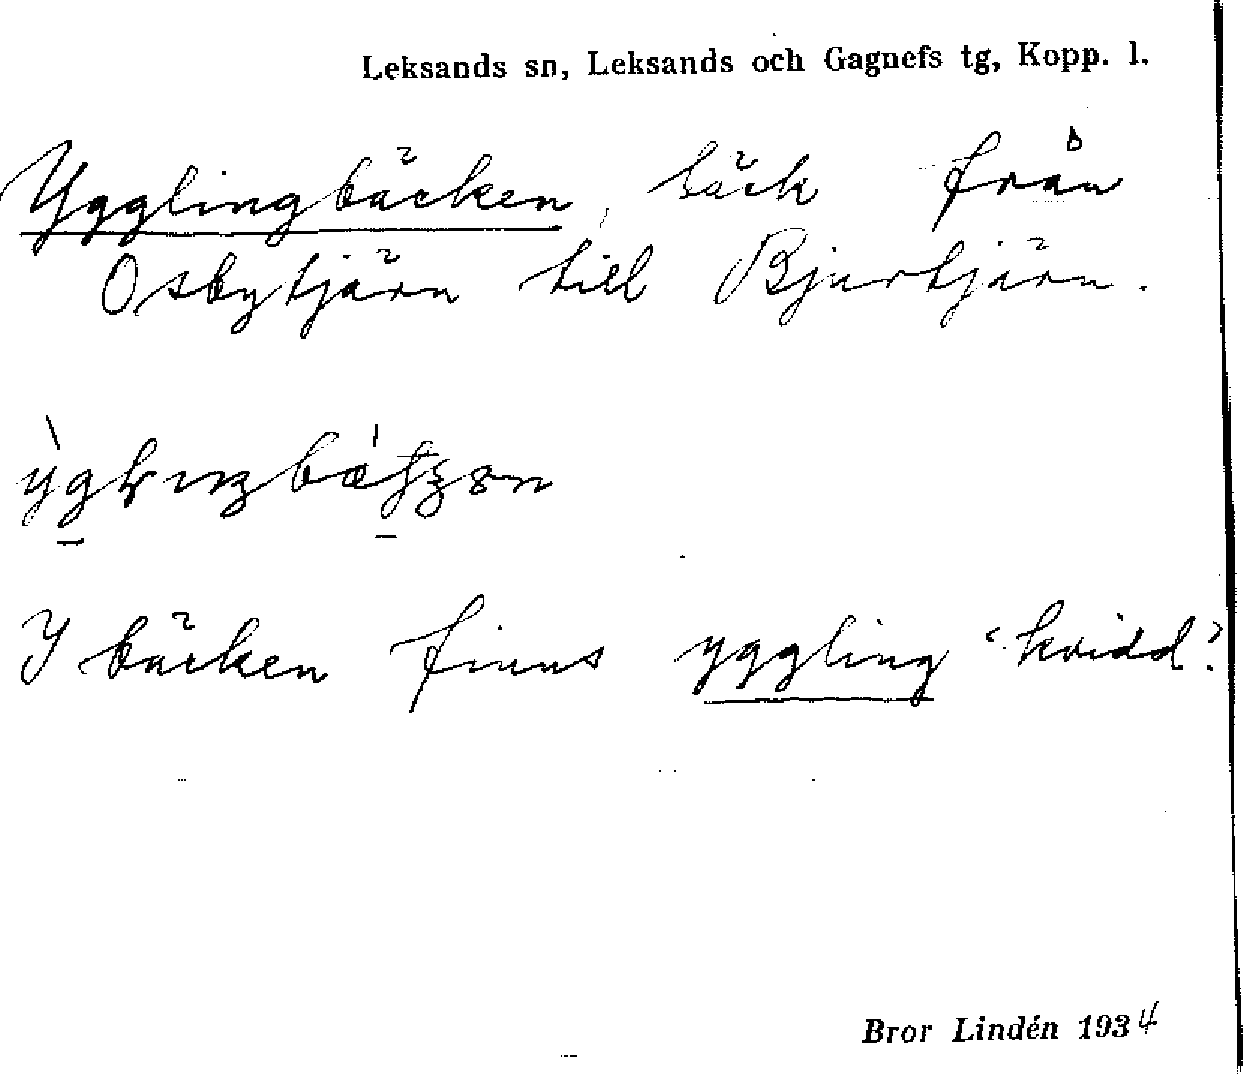 Leksands sn, Leksands och Gagnefs tg, Kopp. l.
Ygglingbäcken, bäck från
Osbytjärn till Bjurtjärn.
I bäcken finns yggling 'kvidd'.
Bror Lindén 1934